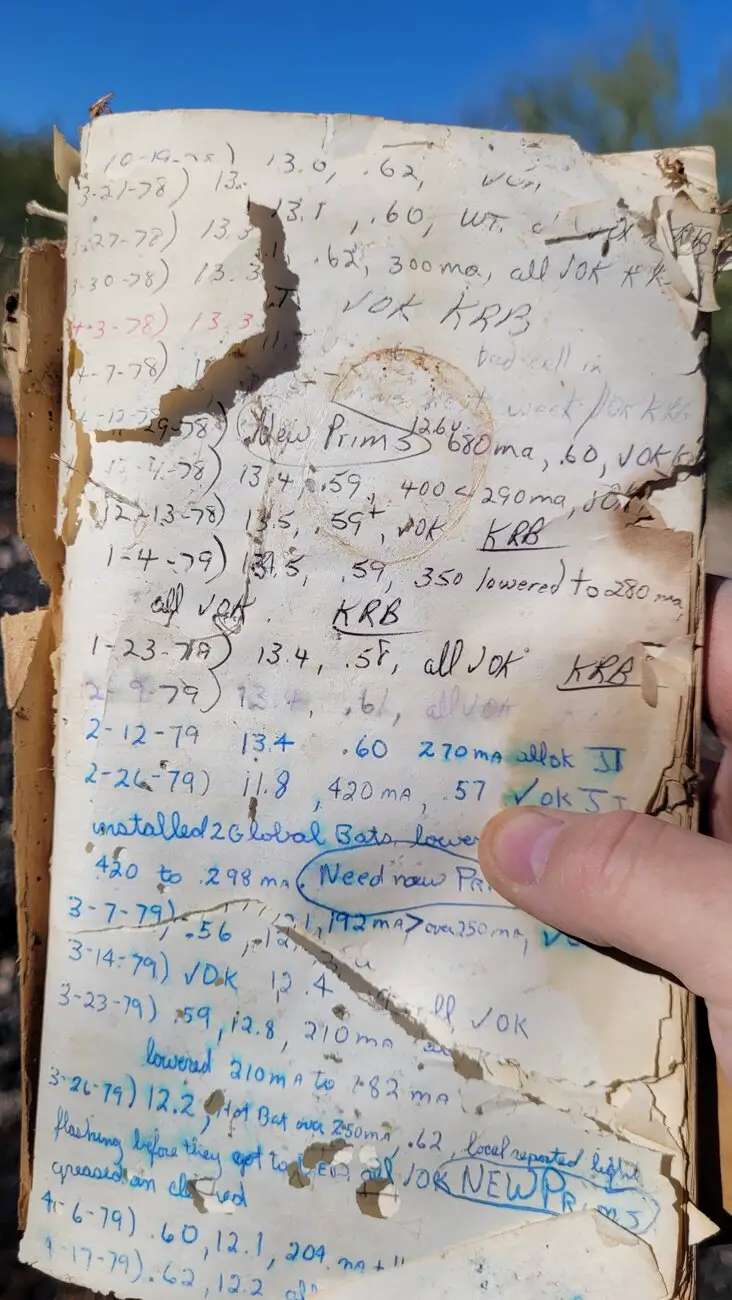 13.0, .62,
3-21-78) 13.
3-27-78) 13.3 13.1, .60, WT.
3-30-78) 13.3 .62, 300ma, all √OK
4-3-78) 13.3 √OK KRB
4-7-78) bad cell in
week √OK
-29-78) New Prims 12.60 680ma, .60, √OK
-78) 13.4, .59, 400 < 290ma, √OK
12-13-78) 13.5, .59+, √OK KRB
1-4-79) 13.5, .59, 350 lowered to 280 ma,
all √OK. KRB
1-23-79) 13.4, .58, all √OK KRB
2-9-79) 13.4, .61, all √OK
2-12-79 13.4 .60 270mA all ok JJ
2-26-79) 11.8, 420mA, .57 √OK JJ
installed 2 Global Bats, lower
420 to .298 ma. Need new Pr
3-7-79) .56, 12. 192mA > over 250ma,
3-14-79) √OK 12.4 all √OK
3-23-79) .59, 12.8, 210 mA
lowered 210mA to 182 mA
3-26-79) 12.2, Hot Bat over 250mA, .62, local reported light
flashing before they got to all √OK NEW PRIMS
greased an
4-6-79) .60, 12.1, 204. ma
4-17-79) .62, 12.2